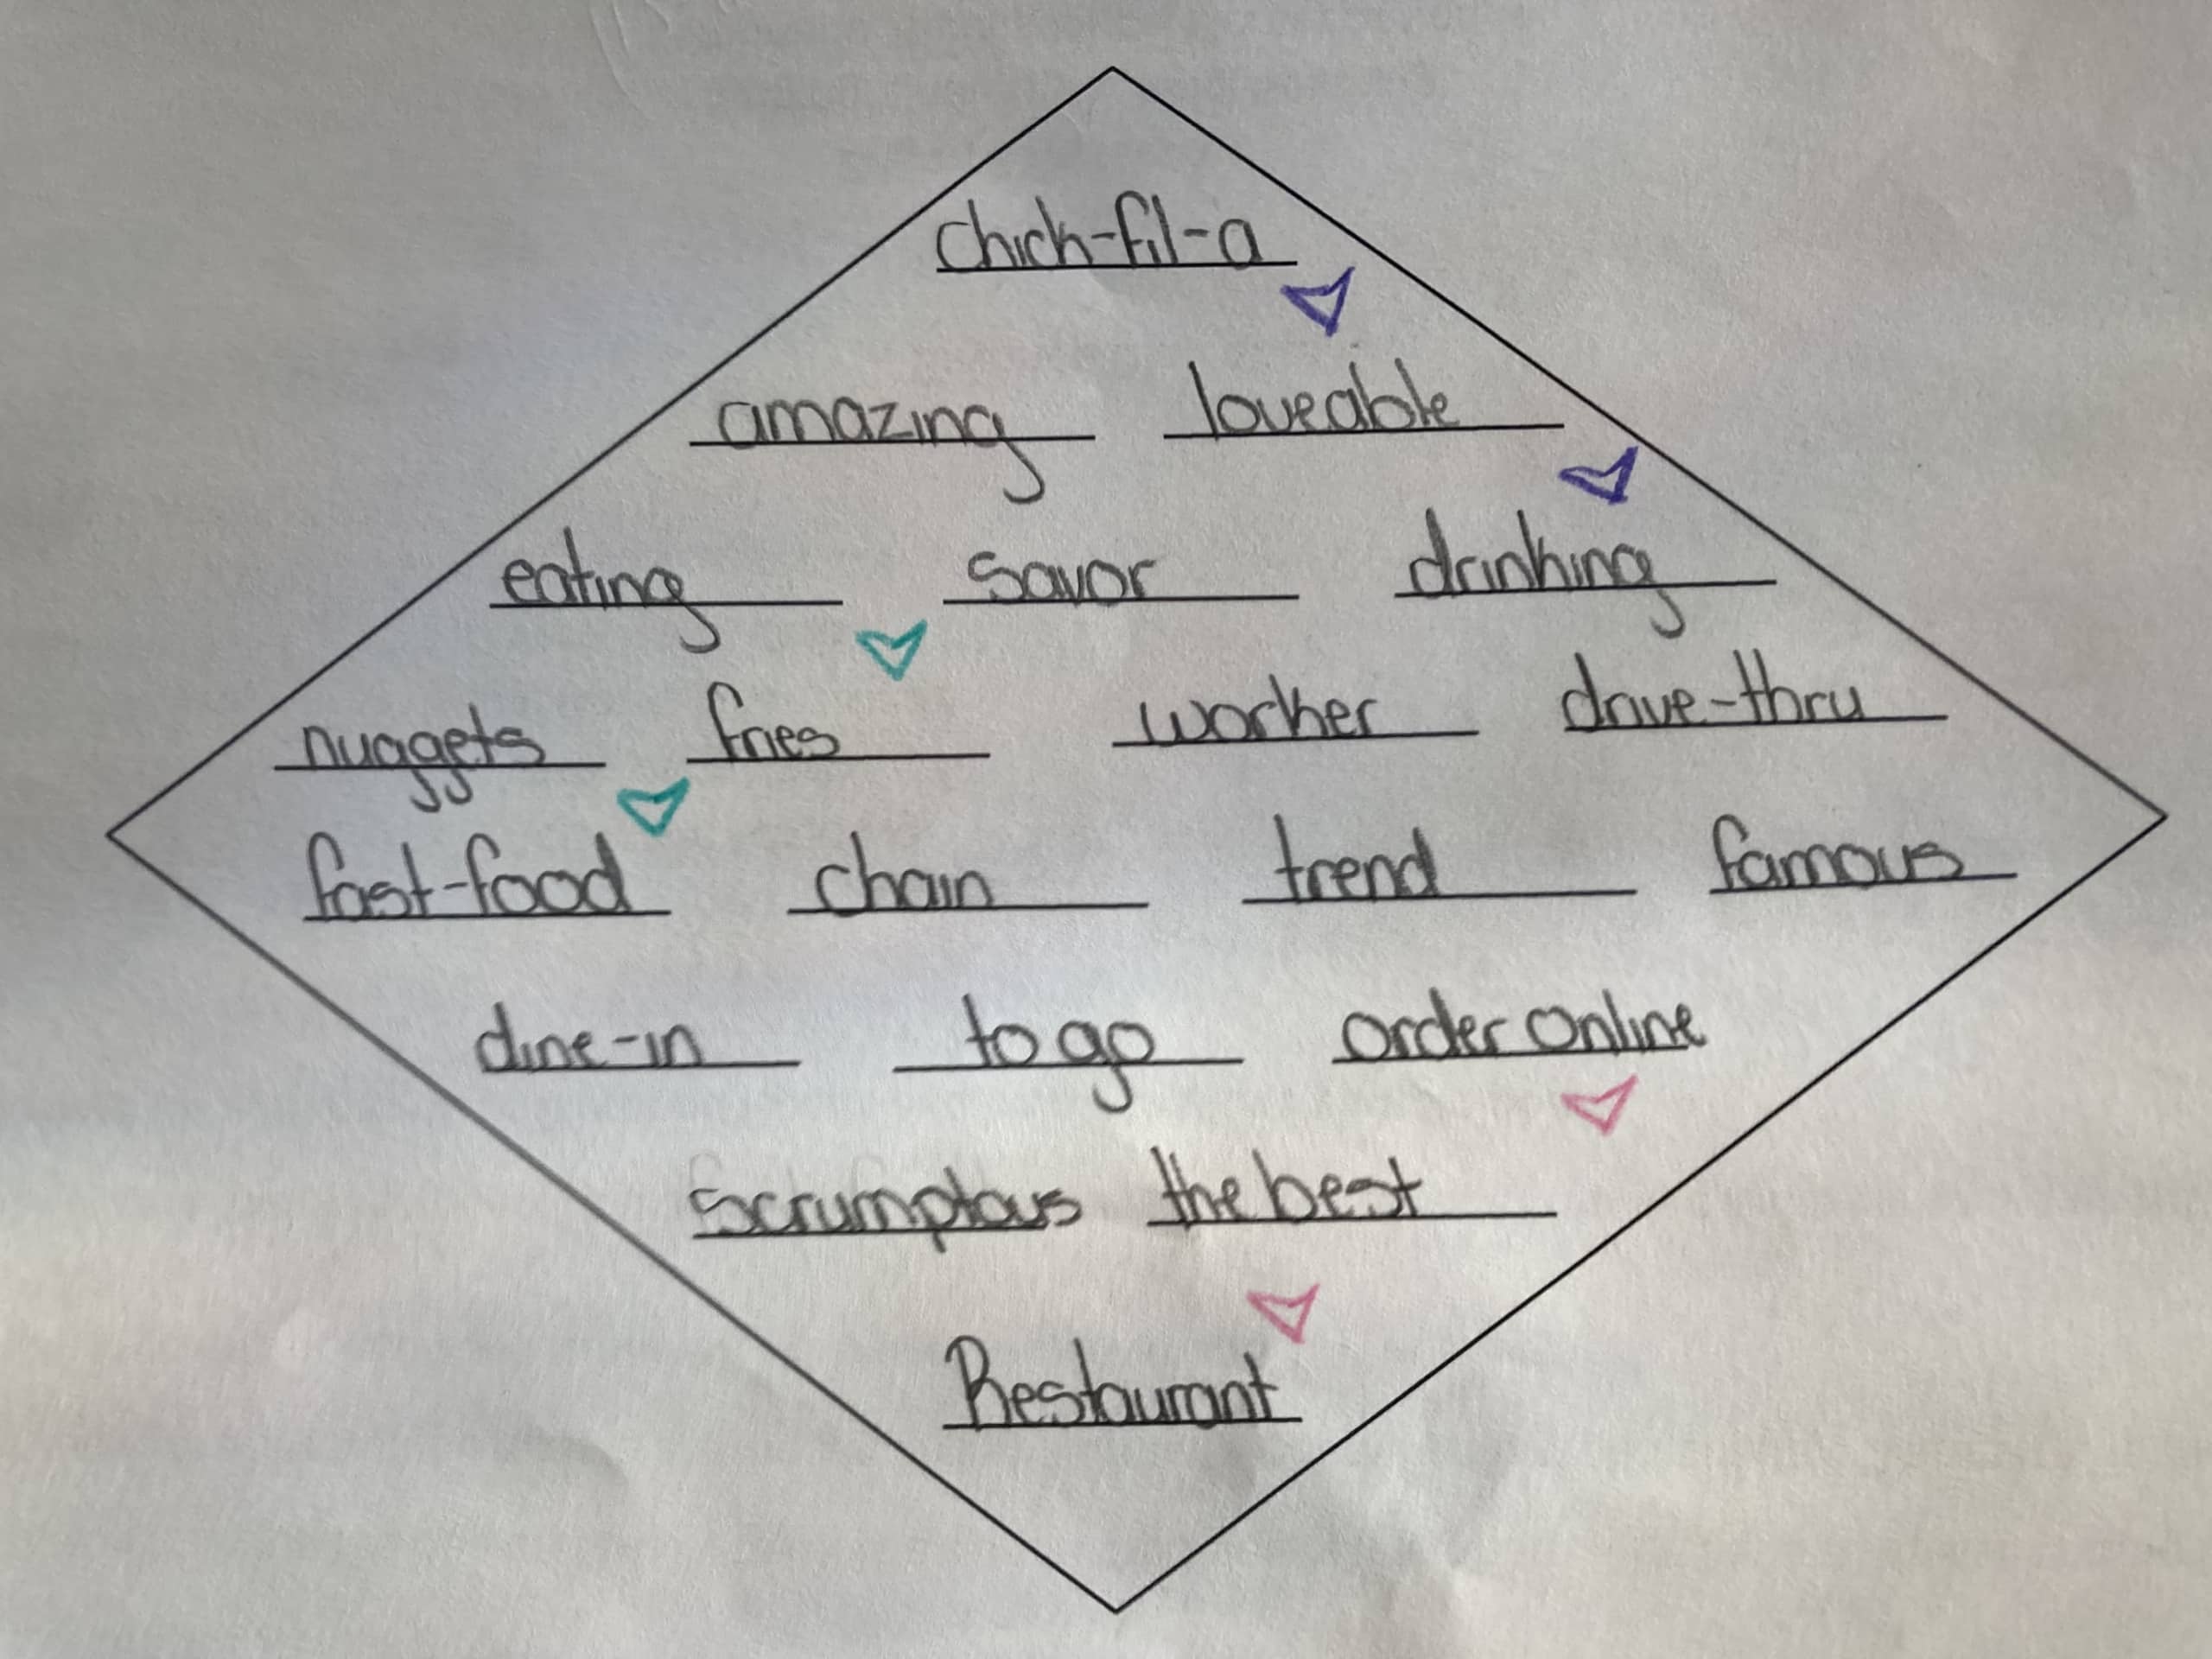 chick-fil-a
amazing loveable
eating savor drinking
nuggets fries worker drive-thru
fast-food chain trend famous
dine-in to go order online
Scrumptous the best
Restaurant